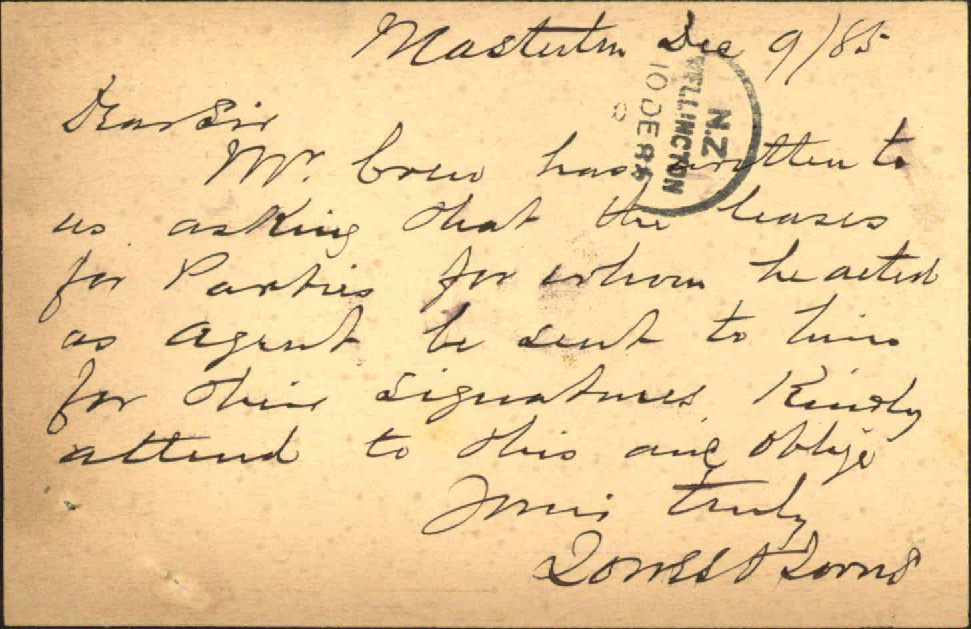 Masterton Dec 9/85
N.Z
WELLINGTON
10 DE 85
Dear Sir
Mr. Crew has written to
us asking that the leases
for Parties for whom he acted
as Agent be sent to him
for their signatures. Kindly
attend to this and oblige
Yours truly
Lowes & Iorns